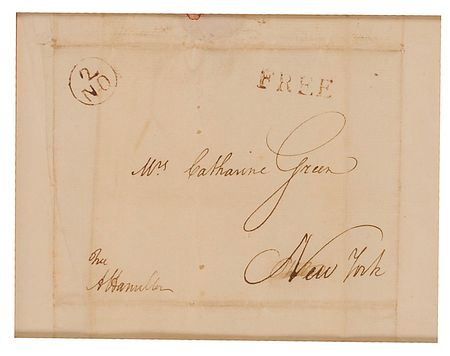 2
NO
FREE
Mrs Catharine Green
New York
Free
A Hamilton